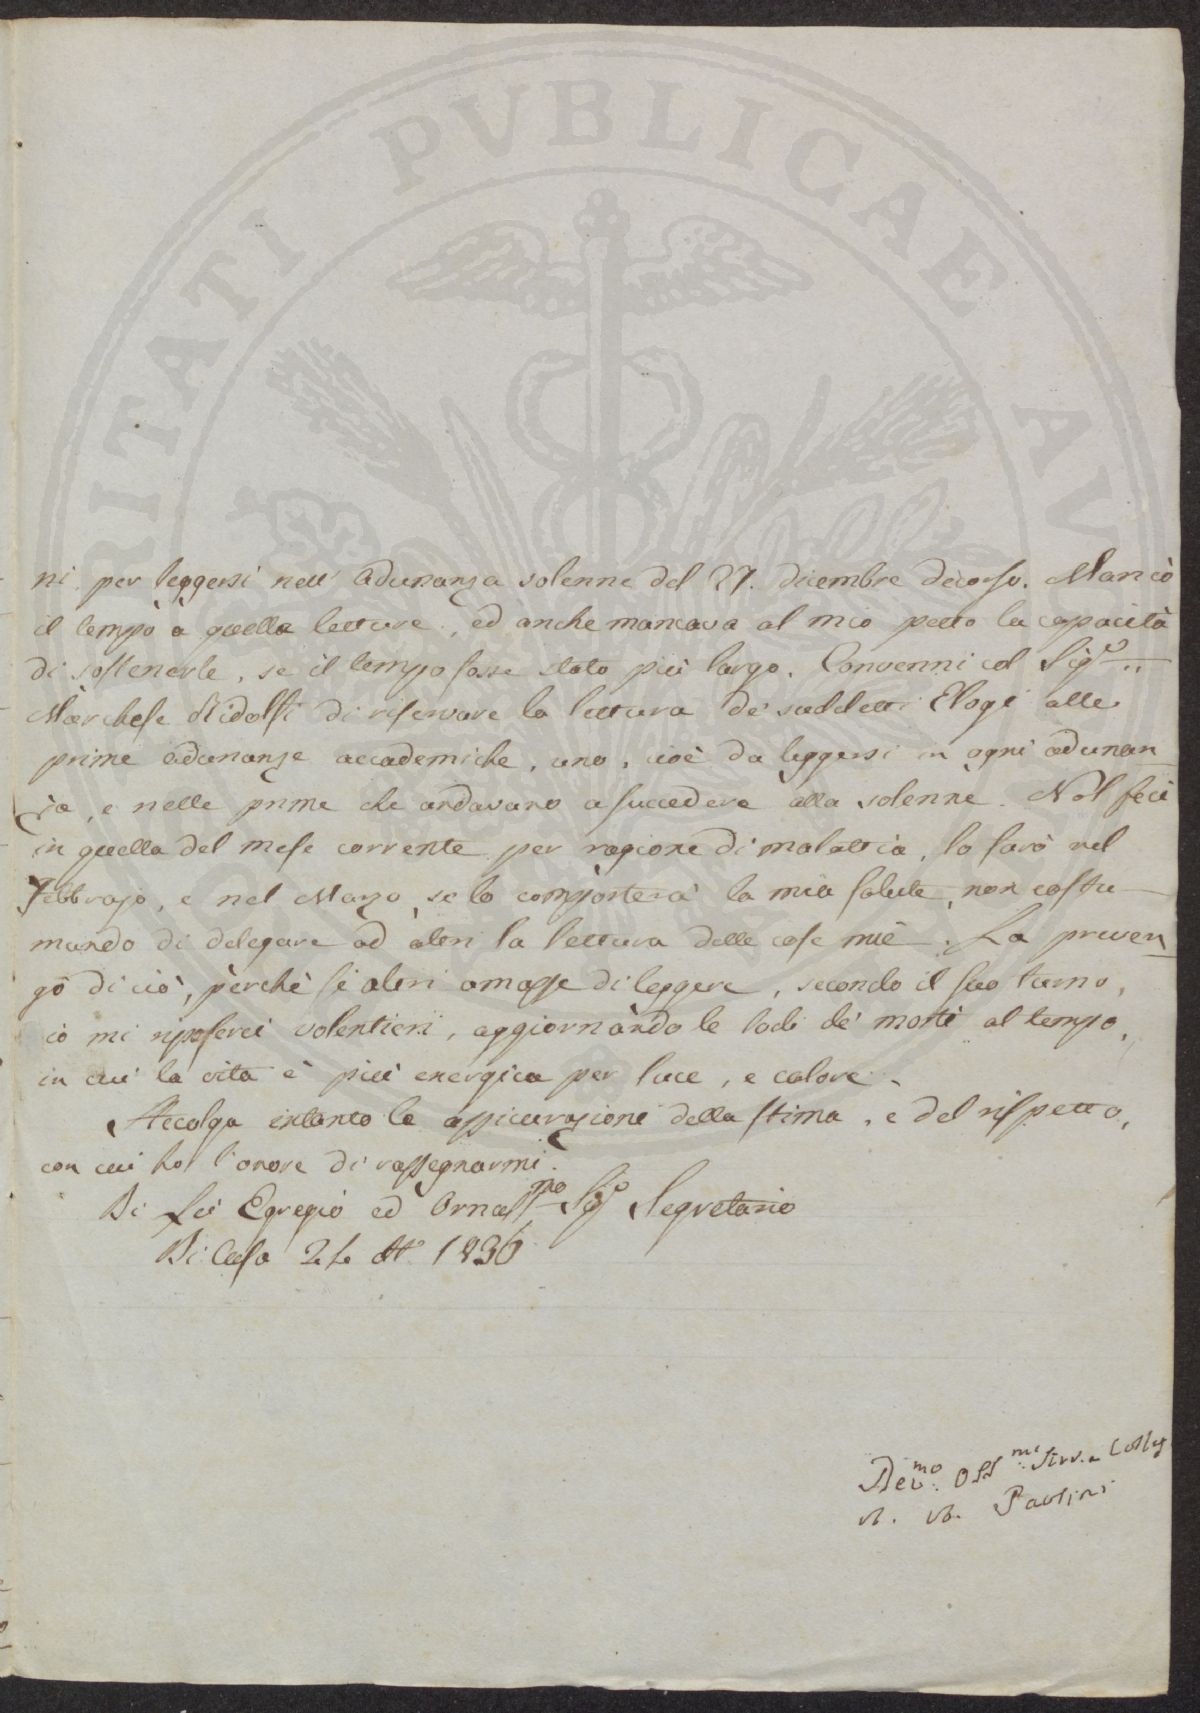 RITATI PVBLICAE AV
ni per leggersi nell' Adunanza solenne del 27. dicembre decorso. Mancò
il tempo a quelle letture, ed anche mancava al mio petto la capacità
di sostenerle, se il tempo fosse stato più largo. Convenni col Sig.e
Marchese Ridolfi di riservare la lettura de' suddetti Elogi alle
prime adunanze accademiche, uno, cioè da leggersi in ogni adunan
za, e nelle prime che andavano a succedere alla solenne. Nol feci
in quella del mese corrente per ragione di malattia, lo farò nel
Febbrajo, e nel Marzo, se lo comporterà la mia salute, non costu-
mando di delegare ad altri la lettura delle cose mie. La preven
go di ciò, perchè se altri amasse di leggere, secondo il suo turno,
io mi riposerei volentieri, aggiornando le lodi de' morti al tempo,
in cui la vita è più energica per luce, e calore.
Accolga intanto le assicurazioni della stima, e del rispetto,
con cui ho l'onore di rassegnarmi.
Di Lei Egregio ed Ornatss.mo Sig.e Segretario
Di Casa 24 1836
Dev.mo Oss.mo Serv. e Colleg
Paolini